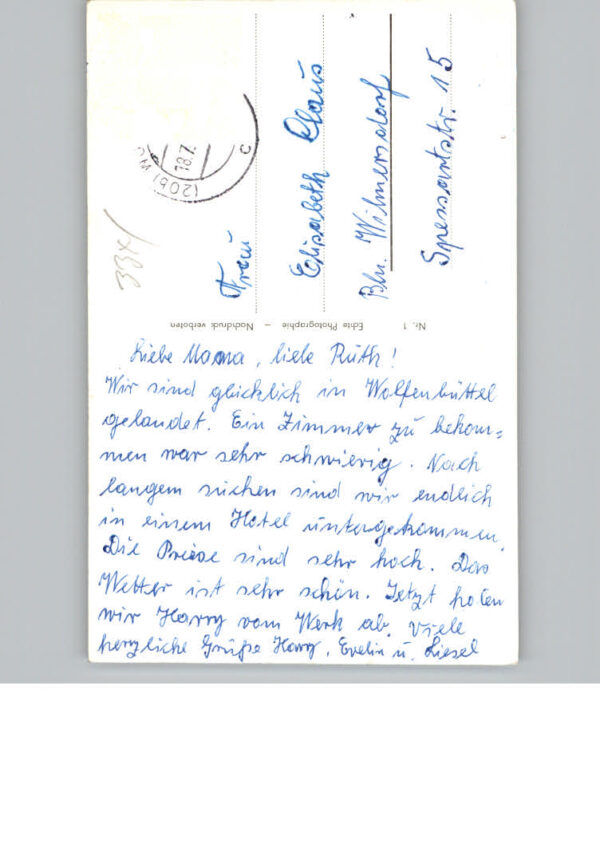 Frau
Elisabeth Claus
Bln. Wilmersdorf
Spessartstr. 15
(20b) W
18.7.
c
334/
Nr. 1 Echte Photographie – Nachdruck verboten
Liebe Mama, liebe Ruth!
Wir sind glücklich in Wolfenbüttel
gelandet. Ein Zimmer zu bekom=
men war sehr schwierig. Nach
langem suchen sind wir endlich
in einem Hotel untergekommen.
Die Preise sind sehr hoch. Das
Wetter ist sehr schön. Jetzt holen
wir Harry vom Werk ab. Viele
herzliche Grüße Harry, Evelin u. Liesel